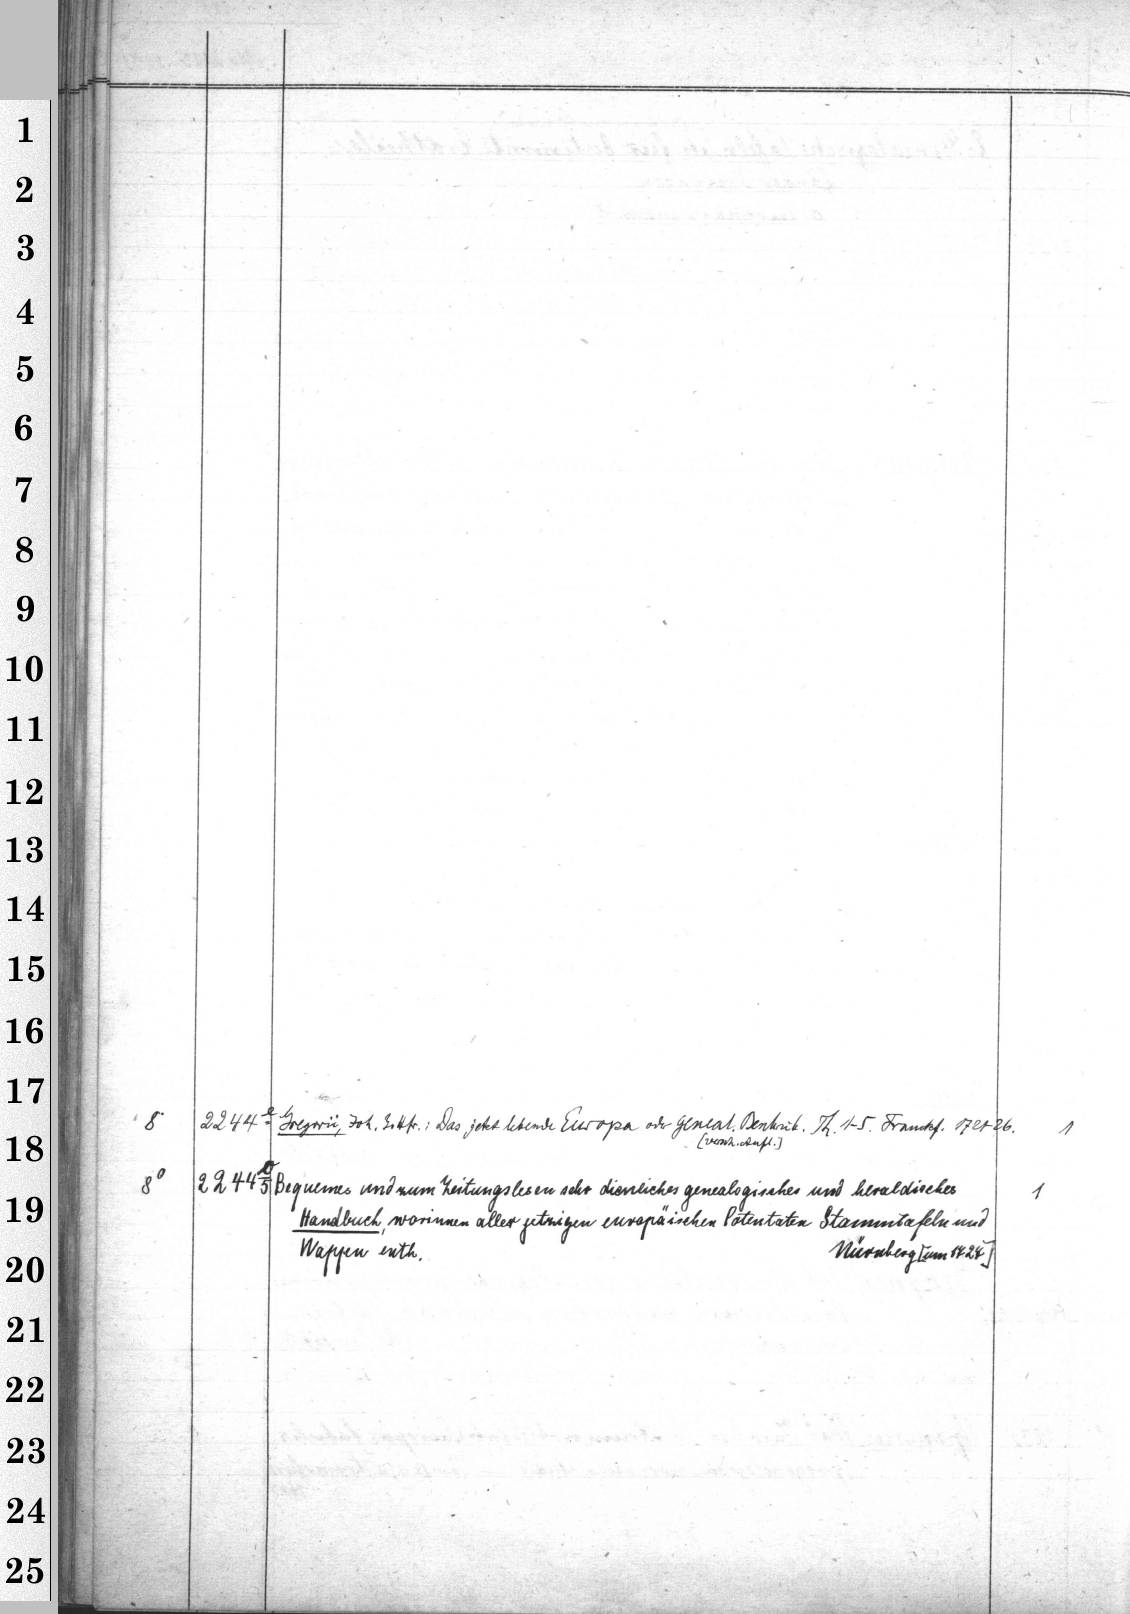 1
2
3
4
5
6
7
8
9
10
11
12
13
14
15
16
17
18
19
20
21
22
23
24
25
8° 2244 Gregorii, Joh. Gottfr.: Das jetzt lebende Europa oder Geneal. Beschrib. Th. 1-5. Franckf. 1721-26. 1
[versch. Aufl.]
8° 2244 Bequemes und zum Zeitungslesen sehr dienliches genealogisches und heraldisches 1
Handbuch, worinnen aller jetzigen europäischen Potentaten Stammtafeln und
Wappen enth. Nürnberg [um]